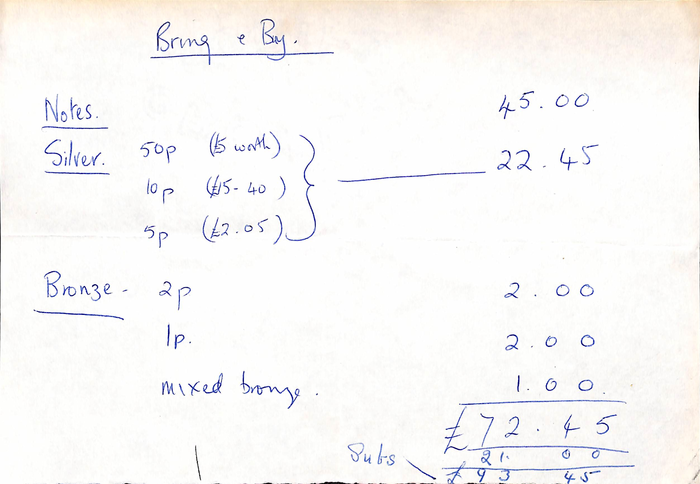 Bring & Buy.
Notes. 45.00
Silver. 50p (£5 worth) 22.45
10p (£15-40)
5p (£2.05)
Bronze - 2p 2.00
1p. 2.00
mixed bronze. 1.00.
£72.45
Subs 21.00
£93 45